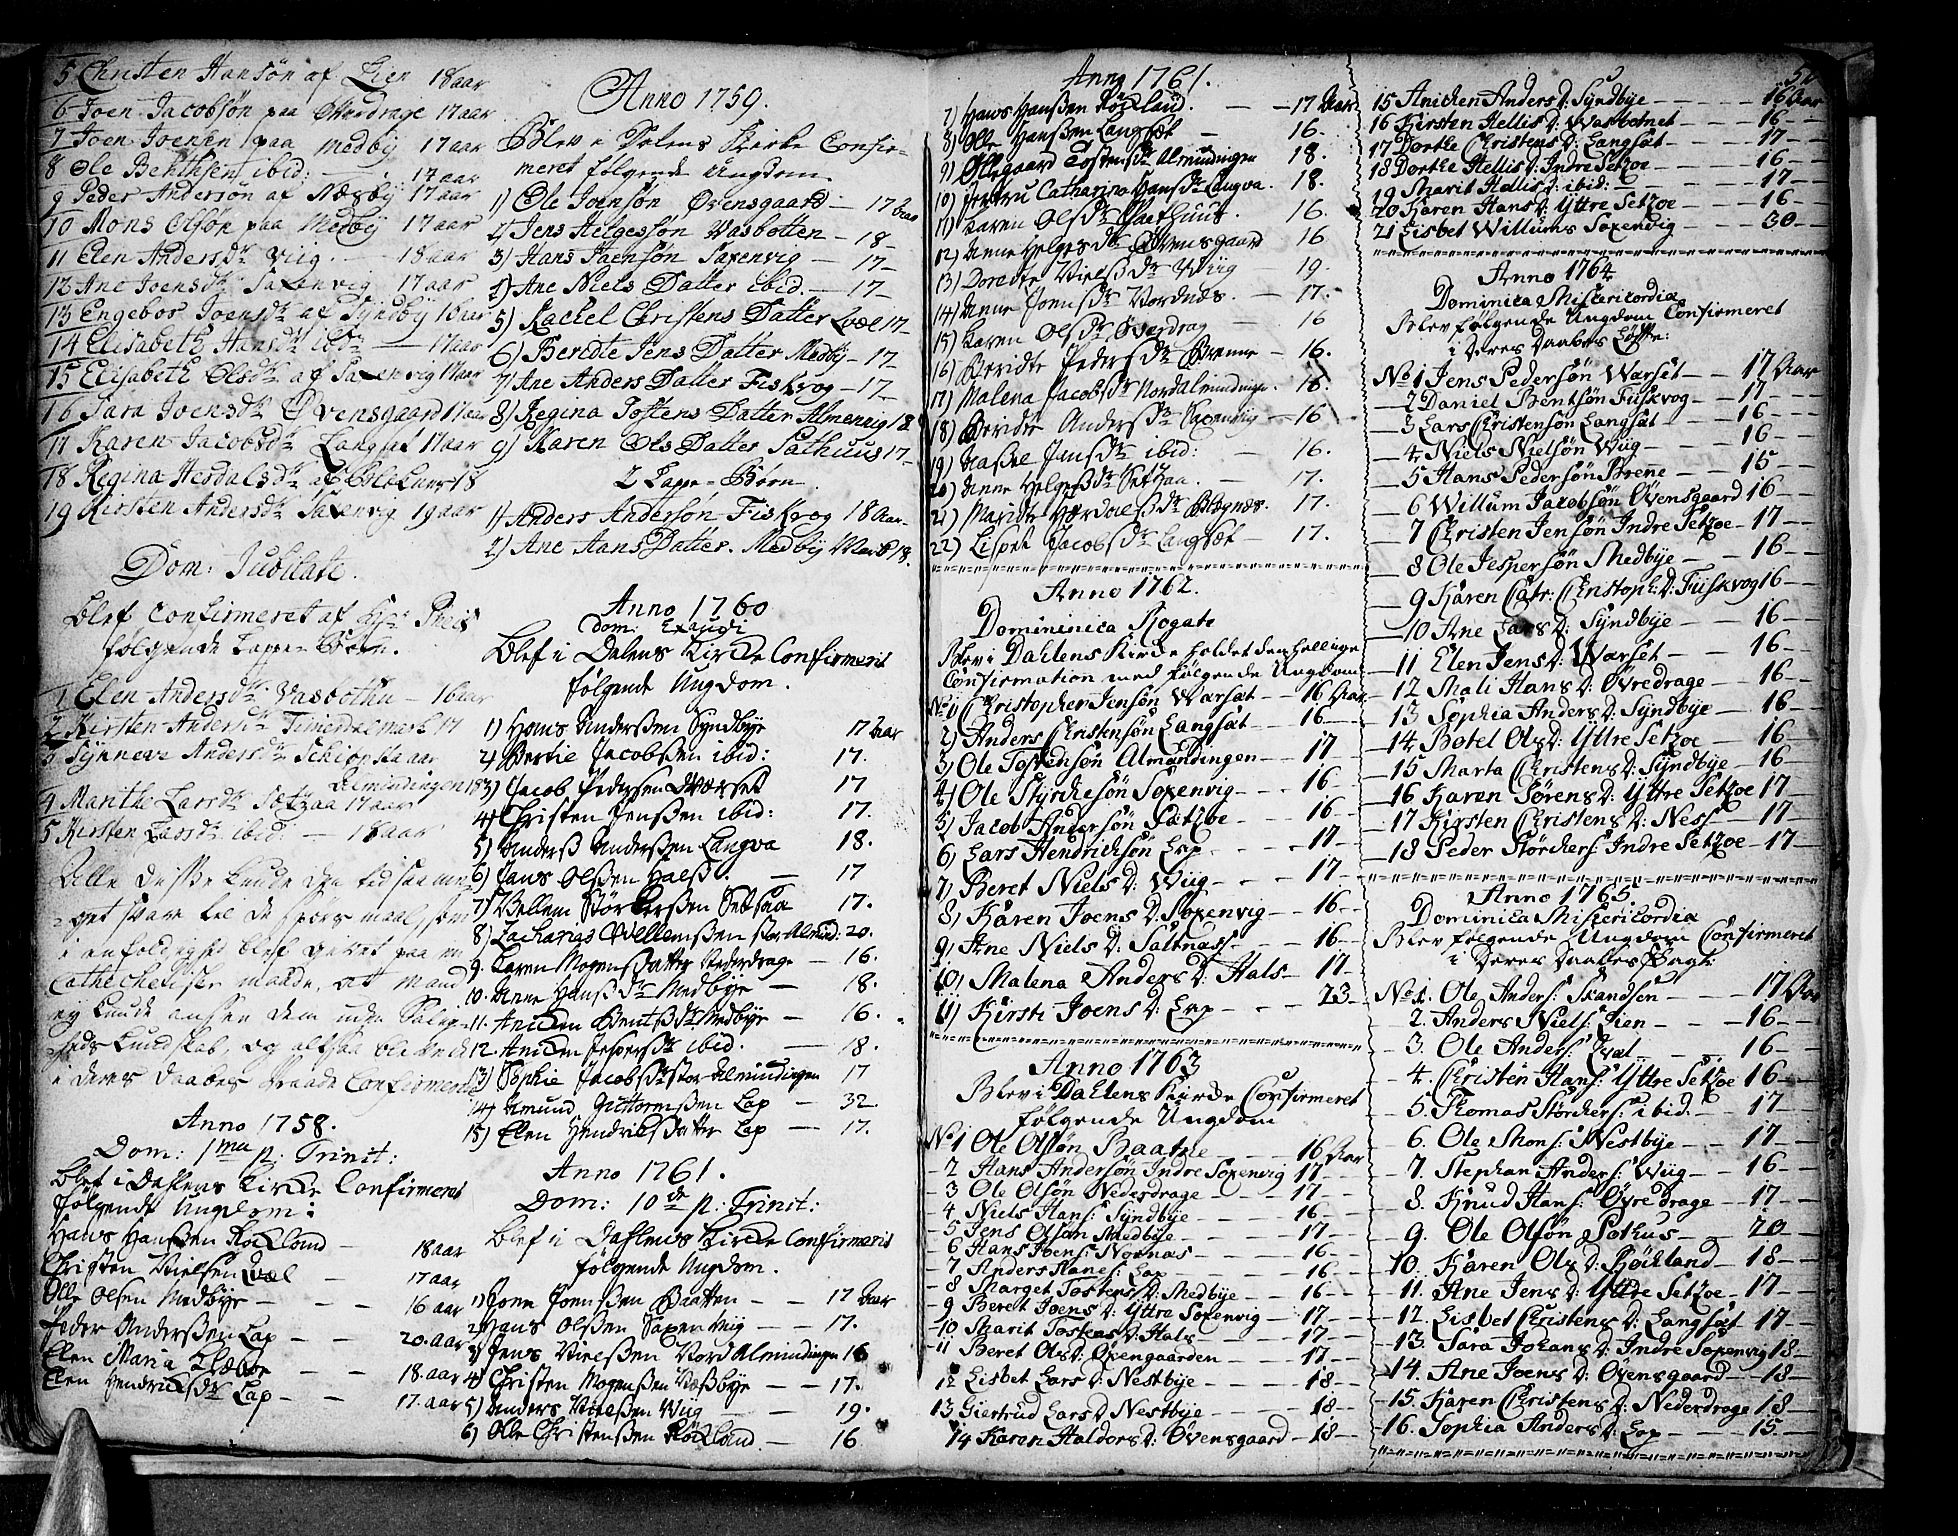 5 Christen Hansøn af Lien 18 aar
6 Joen Jacobsøn paa Øverdrage 17 aar
7 Joen Joensen paa Medby 17 aar
8 Ole Benthsen ibid: 17 aar
9 Peder Andersøn af Næsby 17 aar
10 Mons Olsøn paa Medby 17 aar
11 Elen Andersdr Viig 18 aar
12 Ane Joensdr Saxenvig 17 aar
13 Engebor Joensdr af Syndby 16 aar
14 Elisabeth Hansdr ibid 17 aar
15 Elisabeth Olsdr af Saxenvig 17 aar
16 Sara Joensdr Øvensgaard 17 aar
17 Karen Jacobsdr Langsat 17 aar
18 Regina Herdalsdr af 18
19 Kirsten Andersdr Saxenvig 19 aar
Dom: Jubilate.
blef confirmeret af Hr:
følgende Lappe Børn.
1 Elen Andersdr Vasbothn - 16 aar
2 Kirsten Andersdr 17
3 Synneve Andersdr
Almindingen 18
4 Marithe Larsdr Sætzaa 17 aar
5 Kirsten Larsdr ibid: - 18 aar
Alle disse kunde
svare til de spørsmaal, som
i enfoldighed blef giort paa en
Cathechetisk maade, at mand
ey kunde ansee dem uden
Kundskab, og altsaa
i deres daabes Confirmered
Anno 1758.
Dom: 1ma p: Trinit:
blef i Dahlens Kirke Confirmeret
følgende Ungdom:
Hans Hansen Rokland - 18 aar
Christen Nielsen Evæl - 17 aar
Olle Olsen Medbye - - - 16 aar
Peder Anderssen Lap - - 20. aar
Elen Maria - - 18. aar
Elen Hendrichsdr Lap - - 17. aar
Anno 1759.
Blev i Dalens Kirke Confir-
meret følgende ungdom.
1) Ole Joensøn Øvensgaard - 17 aar
2) Jens Helgesøn Vasbotten - 18 -
3) Hans Joensøn Saxenvig - 17 -
4) Ane Niels Datter ibid. - 17 -
5) Rachel Christens Datter Evæl 17 -
6) Beridte Jens Datter Medby - 17 -
7) Ane Anders Datter Fiskvog - 17 -
8) Regina Tostens Datter 18
9) Karen Ols Datter Sathuus 17 -
2 Lappe-Børn
1) Anders Andersøn Fiskvog 18 Aar -
2) Ane Hans Datter. Medby 18.
Anno 1760
Dom: Exaudi
Blef i Dalens Kirke Confirmerit
følgende Ungdom.
1) Hans Anderssen Syndbye 17 aar
2) Bertie Jacobssen ibid: 17.
3) Jacob Pederssen Warset 17
4) Christen Jenssen ibid: 17.
5) Anders Anderssen Langva 18.
6) Hans Olssen Halss. - 17
7) Vellem Størkerssen Setsaa 17.
8) Zacharias Wellemssen stor Almind: 20.
9. Karen Mogensdatter Nederdrage - 16.
10. Anne Hanssdr Medbye - 18.
11. Anicken Bentssdr Medbye - 16.
12. Anicken Jesperssdr ibid. - 18.
13) Sophie Jacobssdr stor Almindingen 17
14) Amund Guttormssen Lap - 32.
15) Elen Hendrichsdatter Lap - 17.
Anno 1761.
Dom: 10de p: Trinit:
Blef i Dahlens Kirke Confirmerit
følgende Ungdom.
1) Joen Joenssen Baatten - - 17 aar
2) Hans Olssen Saxenviig - - 17.
3) Jens Nielssen Nordalmindingen 16
4) Christen Mogenssen Næssbye - - 17.
5) Anders Nielssen Wiig - - 19.
6) Olle Christenssen Rokland. - 16
Anno 1761.
7) Hans Hanssen Rokland. - - 17 Aar
8) Olle Hanssen Langsæt - 16.
9) Ollegaard Tostensdr Almindingen 18.
10) Jertru Catharina Hansdr Langva. 18.
11) Karen Olsdr Sathuus. 16.
12) Anne Helgesdr Øvensgaard 16
13) Doredte Nielssdr Wiig - 19.
14) Anne Joensdr Nordnæs. - 17.
15) Karen Olsdr Øverdrag - 16
16) Beridte Pedersdr Brenne - 16.
17) Malena Jacobsdr Nordalmindingen. 18.
18) Beridte Andersdr Saxenvig - 16
19) Jensdr ibid: - 16.
20) Anne Helgessdr Setzaa. - 17.
21) Maridte 17.
22) Lispet Jacobsdr Langsæt - 17.
Anno 1762.
Domininica Rogate
Blev i Dahlens Kirke holdet den hellige
Confirmation med følgende Ungdom
No 1) Christopher Jensøn Warset - - 16 Aar
2) Anders Christensøn Langsat - - 16 - -
3) Ole Tostensøn Almandingen - 17 -
4) Ole Styrchesøn Soxenvig - - - 16 - -
5) Jacob Andersøn Sætzoe - - 16 - -
6) Lars Hendrichsøn Lap - - - - 17 - -
7) Beret Niels D: Wiig - - - - 17 - -
8) Karen Joens D: Soxenvig - - 16 - -
9) Ane Niels D: Saltnass - - - 16 - -
10) Malena Anders D: Hals - - 17 -
11) Kirsti Joens D: Lap - - - 23 - -
Anno 1763
Blev i Dahlens Kirke Confirmeret
følgende Ungdom
No 1 Ole Olsøn Baatne - - - 16 Aar
- 2 Hans Andersøn Indre Soxenvig 17 - -
- 3 Ole Olsøn Nederdrage - - - 17 - -
4 Niels Hans: Syndbye - - - - 16 - -
5 Jens Olsøn Medbye - - - - 17 - -
6 Hans Joens: Nornæs - - - - 16 - -
7 Anders Lap - - - - 16 - -
8 Marget Tostens D: Medbye - - 16 - -
- 9 Beret Joens D: Yttre Soxenvig - - 17 - -
10 Marit Tostens D: Hals - - - 17 - -
- 11 Beret Ols D: Øxengaarden - - - 17 - -
12 Lisbet Lars D: Nestbye - - - 18 - -
13 Giertrud Lars D: Nestbye - - - 18 - -
14 Karen Haldors D: Øvensgaard - - 18 - -
15 Anichen Anders D: Syndbye - - - - - 16 Aar
16 Kirsten Hellis D: Wasbotnet - - 16 - -
17 Dorthe Christens D: Langsat - - 17 - -
18 Dorthe Hellis D: Indre Setzoe - - 16 - -
19 Marit Hellis D: ibid: - - - - 17 - -
20 Karen Hans D: Yttre Setzoe - - 16 -
21 Lisbet Willums Soxenvig - - - 30 - -
Anno 1764
Dominica Misericordia
Blev følgende Ungdom Confirmeret
i deres Daabes Løfte:
No 1 Jens Pedersøn Warset - - 17 Aar
- 2 Daniel Bentsøn Fuskvog - - 17 - -
- 3 Lars Christensøn Langsat - - 16 - -
- 4 Niels Nielsøn Wiig - - - - 16 - -
- 5 Hans Pedersøn Brene - - 15 - -
- 6 Willum Jacobsøn Øvensgaard 16 - -
- 7 Christen Jensøn Indre Setzoe - 17 - -
- 8 Ole Jespersøn Medbye - - - 16 - -
- 9 Karen Catr: Christoph: D: Fuskvog 16 - -
- 10 Ane Lars D: Syndbye - - - 16 - -
- 11 Elen Jens D: Warset - - - 16 - -
- 12 Mali Hans D: Øvredrage - - 16 - -
- 13 Sophia Anders D: Syndbye - - 16 - -
- 14 Botel Ols D: Yttre Setzoe - - 16 - -
- 15 Marta Christens D: Syndbye - 16 - -
- 16 Karen Sørens D: Yttre Setzoe 17 - -
- 17 Kirsten Christens D: Ness - - 17 - -
- 18 Peder Størchers: Indre Setzoe - 17 - -
Anno 1765.
Dominica Misericordia
Blev følgende Ungdom Confirmeret
i deres Daabes Pagt:
No 1. Ole Anders: Skandsen - - - 17 Aar
2. Anders Niels: Lien - - - - 16 - -
3. Ole Anders: Evæl - - - - 16 - -
4. Christen Hans: Yttre Setzoe - 16 - -
5. Thomas Størchers: ibid. - - - 17 - -
6. Ole Mons: Nestbye - - - - 17 - -
7. Stephan Anders: Wiig - - - 16 - -
8. Knud Hans: Øvredrage - - 17 - -
9. Ole Olsøn Sothus - - - - 20 - -
10. Karen Ols D: Røckland - - 18 - -
- 11. Ane Jens D: Yttre Setzoe - 17 - -
- 12. Lisbet Christens D: Langsat - 17 - -
- 13. Sara Johans D: Indre Soxenvig 18 - -
- 14. Ane Joens D: Øvensgaard - - 18 - -
- 15. Karen Christens D: Nederdrage 18 - -
- 16. Sophia Anders D: Lop - - - 15. - -